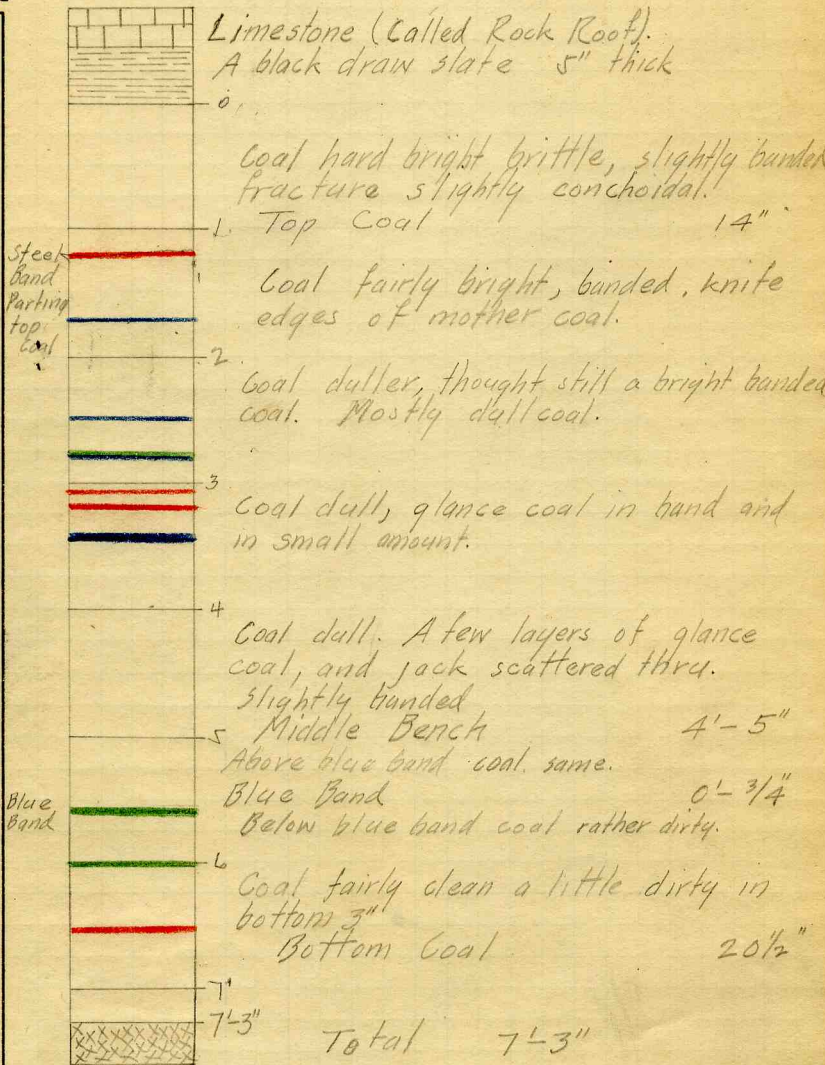 Limestone (Called Rock Roof).
A black draw slate 5" thick
0
Coal hard bright brittle, slightly banded
fracture slightly conchoidal.
1
Top Coal 14"
Steel
Band
Parting
top
Coal
Coal fairly bright, banded, knife
edges of mother coal.
2
Coal duller, thought still a bright banded
coal. Mostly dull coal.
3
Coal dull, glance coal in band and
in small amount.
4
Coal dull. A few layers of glance
coal, and jack scattered thru.
slightly banded
5
Middle Bench 4'-5"
Above blue band coal same.
Blue Band 0'-3/4"
Blue
Band
Below blue band coal rather dirty.
6
Coal fairly clean a little dirty in
bottom 3"
Bottom Coal 20 1/2"
7'
7'-3"
Total 7'-3"